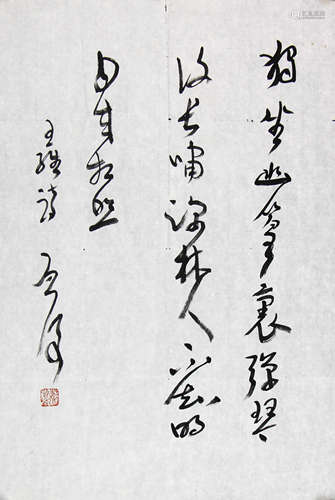 獨坐幽篁裏彈琴
復長嘯深林人不知明
月來相照
王維詩